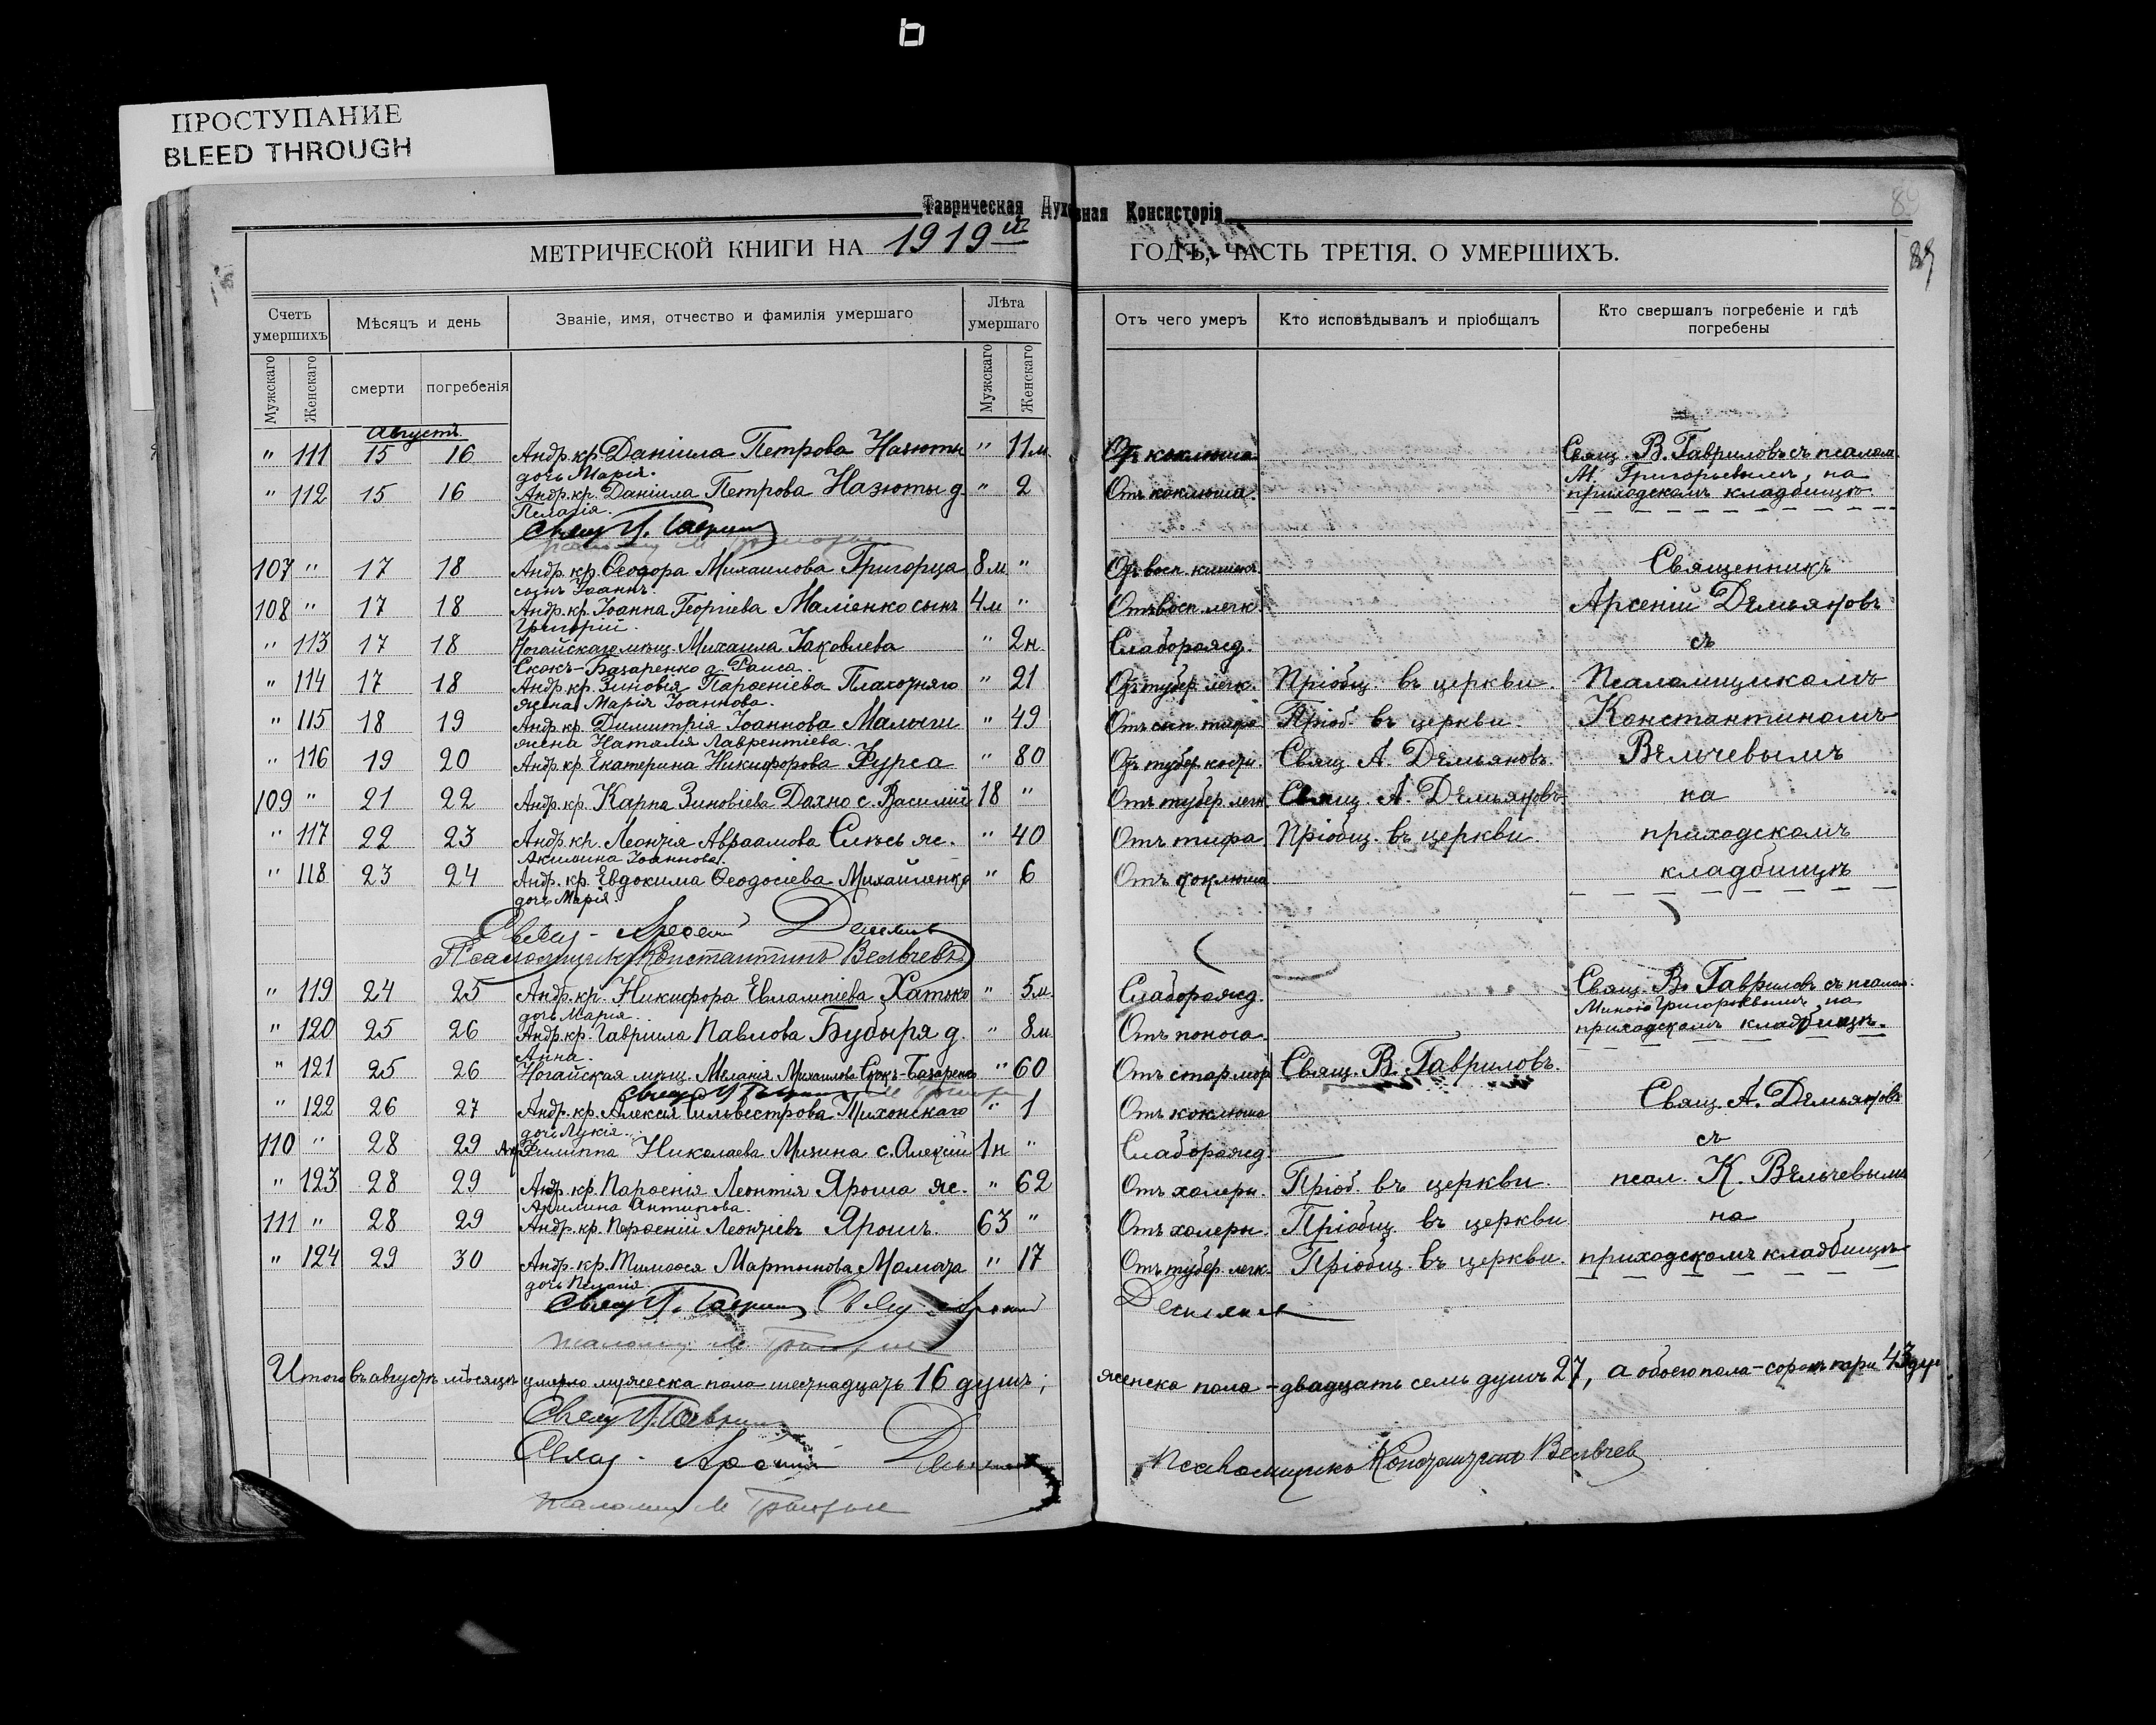 ПРОСТУПАНИЕ
BLEED THROUGH
Таврическая Духовная Консисторія
89
МЕТРИЧЕСКОЙ КНИГИ НА 1919й ГОДЪ, ЧАСТЬ ТРЕТІЯ, О УМЕРШИХЪ.
Счетъ умершихъ
Мѣсяцъ и день
Званіе, имя, отчество и фамилія умершаго
Лѣта умершаго
Отъ чего умеръ
Кто исповѣдывалъ и пріобщалъ
Кто свершалъ погребеніе и гдѣ погребены
Мужскаго Женскаго смерти погребенія Мужскаго Женскаго
Августъ
" 111 15 16 Андр. кр. Даніила Петрова Назюты " 11 м. Отъ коклюша. Свящ. В. Гавриловъ съ псалом.
дочь Марія. М. Григорьевымъ, на
" 112 15 16 Андр. кр. Даніила Петрова Назюты д. " 2 Отъ коклюша. приходскомъ кладбищѣ.
Пелагія.
107 " 17 18 Андр. кр. Ѳеодора Михаилова Григорца 8 м " Отъ восп. кишекъ Священникъ
сынъ Іоаннъ.
108 " 17 18 Андр. кр. Іоанна Георгіева Маліенко сынъ 4 м " Отъ восп. легк. Арсеній Демьяновъ
Григорій.
" 113 17 18 Ногайскаго мѣщ. Михаила Іаковлева " 2 н Слаборожд. съ
Скокъ-Базаренко д. Раиса.
" 114 17 18 Андр. кр. Зиновія Парѳеніева Плахотняго " 21 Отъ тубер. легк. Пріобщ. въ церкви. Псаломщикомъ
жена Марія Іоаннова.
" 115 18 19 Андр. кр. Димитрія Іоаннова Малыги " 49 Отъ сып. тифа Пріоб. въ церкви Константиномъ
жена Наталія Лаврентіева.
" 116 19 20 Андр. кр. Екатерина Никифорова Фурса " 80 Отъ тубер. кости. Свящ. А. Демьяновъ. Вельчевымъ
109 " 21 22 Андр. кр. Карпа Зиновіева Дахно с. Василій 18 " Отъ тубер. легк. Свящ. А. Демьяновъ на
" 117 22 23 Андр. кр. Леонтія Авраамова Слюсь ж. " 40 Отъ тифа Пріобщ. въ церкви. приходскомъ
Акилина Іоаннова.
" 118 23 24 Андр. кр. Евдокима Ѳеодосіева Михайленко " 6 Отъ коклюша кладбищѣ
дочь Марія.
Свящ. Арсеній Демьянов
Псаломщикъ Константинъ Вельчевъ
" 119 24 25 Андр. кр. Никифора Евлампіева Хатько " 5 м. Слаборожд. Свящ. В. Гавриловъ съ псалом.
дочь Марія. Миною Григорьевымъ на
" 120 25 26 Андр. кр. Гавриила Павлова Бубыря д. " 8 м Отъ поноса. приходскомъ кладбищѣ.
Анна.
" 121 25 26 Ногайская мѣщ. Меланія Михаилова Скокъ-Базаренко " 60 Отъ стар. мор. Свящ. В. Гавриловъ.
" 122 26 27 Андр. кр. Алексія Сильвестрова Михонскаго " 1 Отъ коклюша Свящ. А. Демьяновъ
дочь Лукія.
110 " 28 29 Анр. Филиппа Николаева Мизина с. Алексій 1 н " Слаборожд. съ
" 123 28 29 Андр. кр. Парѳенія Леонтія Яроша ж. " 62 Отъ холеры. Пріоб. въ церкви. псал. К. Вельчевымъ
Акилина Антипова.
111 " 28 29 Андр. кр. Парѳеній Леонтіевъ Ярошъ. 63 " Отъ холеры. Пріобщ. въ церкви. на
" 124 29 30 Андр. кр. Тимоѳея Мартынова Момота " 17 Отъ тубер. легк. Пріобщ. въ церкви. приходскомъ кладбищѣ
дочь Пелагія.
Итого въ августѣ мѣсяцѣ умерло мужеска пола шестнадцать 16 душъ; женска пола - двадцать семь душъ 27, а обоего пола - сорокъ три 43 душ.
Свящ. Арсеній Демьянов
Псаломщикъ Константинъ Вельчев